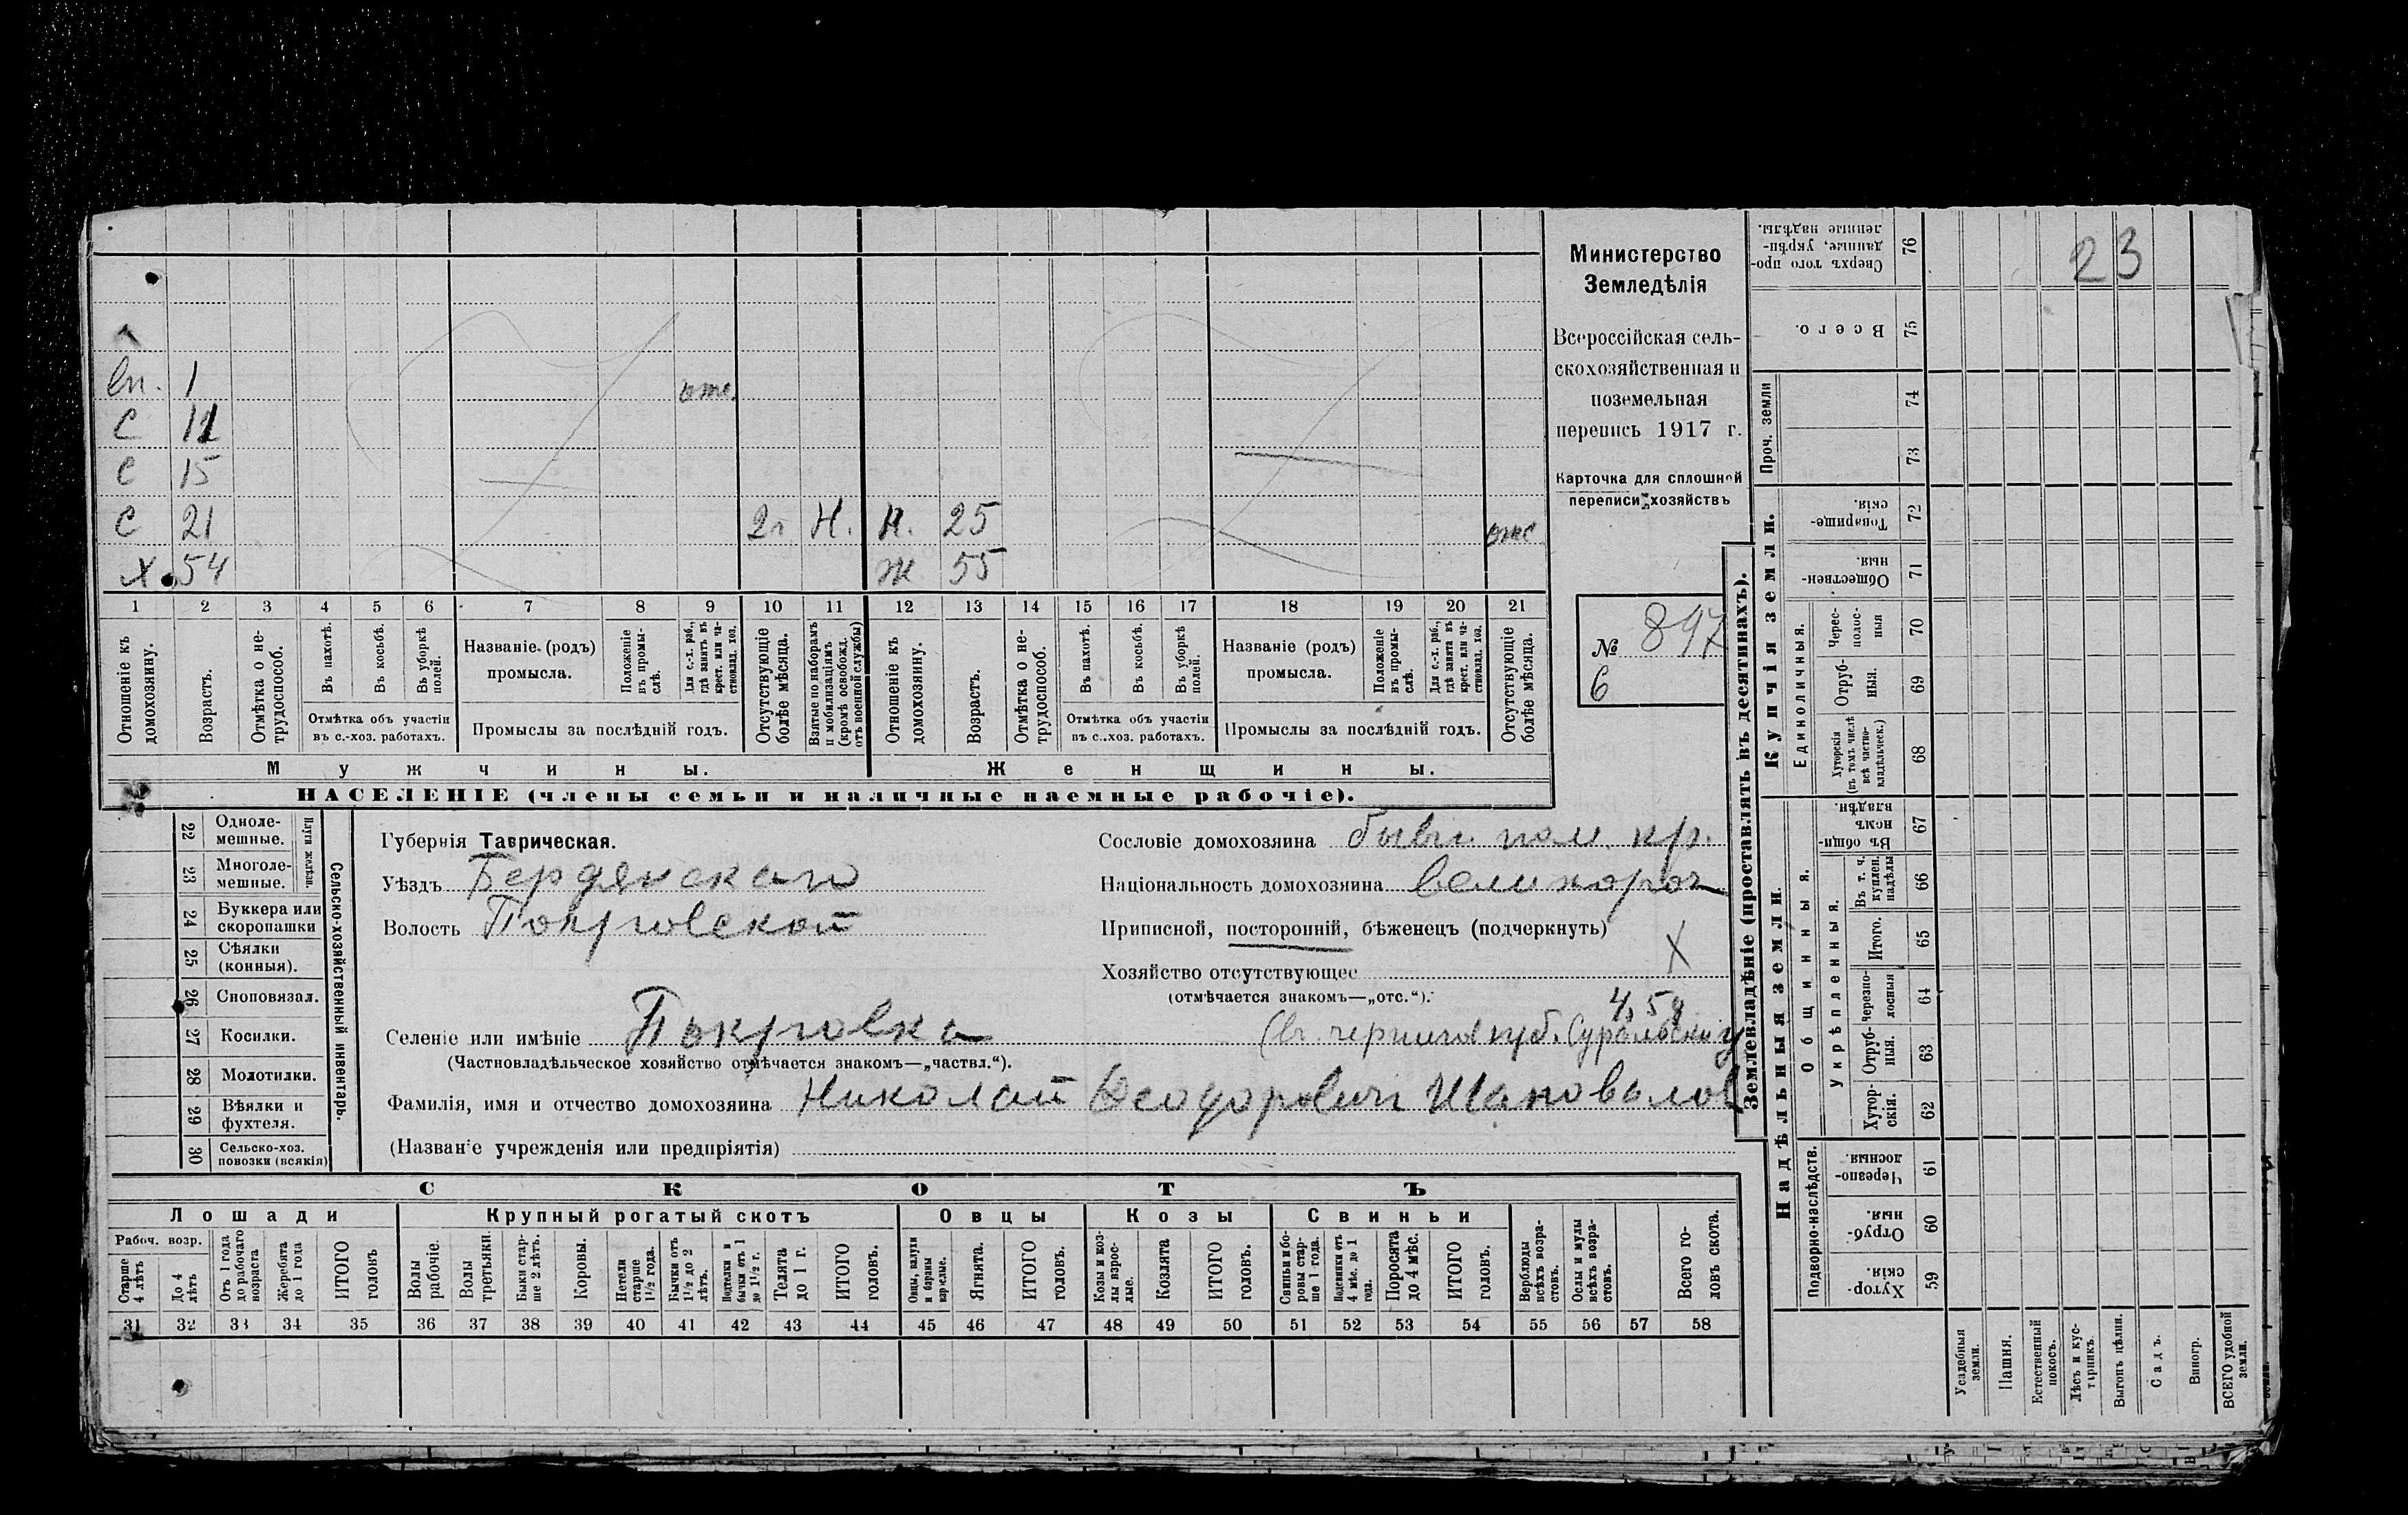 Министерство
Земледѣлія
Всероссійская сель-
скохозяйственная и
поземельная
перепись 1917 г.
Карточка для сплошной
переписи хозяйствъ
№ 897
6
23
вп. 1 отс.
С 11
С 15
С 21 2г Н. Н. 25 отс
Х 54 Ж 55
1 2 3 4 5 6 7 8 9 10 11 12 13 14 15 16 17 18 19 20 21
Отношеніе къ домохозяину.
Возрастъ.
Отмѣтка о не-трудоспособ.
Въ пахотѣ.
Въ косьбѣ.
Въ уборкѣ полей.
Отмѣтка объ участіи въ с.-хоз. работахъ.
Названіе (родъ) промысла.
Положеніе въ промы-слѣ.
Для с.-х. раб., гдѣ занятъ въ крест. или ча-стновлад. хоз.
Промыслы за послѣдній годъ.
Отсутствующіе болѣе мѣсяца.
Взятые по наборамъ и мобилизаціямъ (кромѣ освобожд. отъ военной службы)
Отношеніе къ домохозяину.
Возрастъ.
Отмѣтка о не-трудоспособ.
Въ пахотѣ.
Въ косьбѣ.
Въ уборкѣ полей.
Отмѣтка объ участіи въ с.-хоз. работахъ.
Названіе (родъ) промысла.
Положеніе въ промы-слѣ.
Для с.-х. раб., гдѣ занята въ крест. или ча-стновлад. хоз.
Промыслы за послѣдній годъ.
Отсутствующіе болѣе мѣсяца.
Мужчины. Женщины.
НАСЕЛЕНІЕ (члены семьи и наличные наемные рабочіе).
22 Одноле-мешные.
23 Многоле-мешные.
Плуги желѣзн.
24 Буккера или скоропашки
25 Сѣялки (конныя).
26 Сноповязал.
27 Косилки.
28 Молотилки.
29 Вѣялки и фухтеля.
30 Сельско-хоз. повозки (всякія)
Сельско-хозяйственный инвентарь.
Губернія Таврическая.
Уѣздъ Бердянскаго
Волость Покровской
Сословіе домохозяина бывш. пом. кр.
Національность домохозяина великоросс
Приписной, посторонній, бѣженецъ (подчеркнуть)
Хозяйство отсутствующее Х
(отмѣчается знакомъ—„отс.“).
4,5 д
Селеніе или имѣніе Покровка
(Частновладѣльческое хозяйство отмѣчается знакомъ—„частвл.“).
Фамилія, имя и отчество домохозяина Николай Феодорович Шаповалов
(Названіе учрежденія или предпріятія)
СКОТЪ
Лошади Крупный рогатый скотъ Овцы Козы Свиньи
Рабоч. возр.
Старше 4 лѣтъ
До 4 лѣтъ
Отъ 1 года до рабочаго возраста
Жеребята до 1 года
ИТОГО головъ
Волы рабочіе.
Волы третьяки.
Быки стар-ше 2 лѣтъ.
Коровы.
Нетели старше 1½ года.
Бычки отъ 1½ до 2 лѣтъ.
Подтелки и бычки отъ 1 до 1½ г.
Телята до 1 г.
ИТОГО головъ.
Овцы, валухи и бараны взрослые.
Ягнята.
ИТОГО головъ.
Козы и коз-лы взрос-лые.
Козлята
ИТОГО головъ.
Свиньи и бо-ровы стар-ше 1 года.
Подсвинки отъ 4 мѣс. до 1 года.
Поросята до 4 мѣс.
ИТОГО головъ.
Верблюды всѣхъ возра-стовъ.
Ослы и мулы всѣхъ возра-стовъ.
Всего го-ловъ скота.
31 32 33 34 35 36 37 38 39 40 41 42 43 44 45 46 47 48 49 50 51 52 53 54 55 56 57 58
Землевладѣніе (проставлять въ десятинахъ).
Надѣльныя земли. Купчія земли.
Подворно-наслѣдств.
Общинныя.
Укрѣпленныя.
Единоличныя.
Проч. земли
59 Хутор-скія.
60 Отруб-ныя.
61 Черезпо-лосныя.
62 Хутор-скія.
63 Отруб-ныя.
64 Черезпо-лосныя
65 Итого.
66 Въ т. ч. куплен. надѣлы
67 Въ общин-номъ владѣн.
68 Хуторскія (въ томъ числѣ всѣ частно-владѣльческ.)
69 Отруб-ныя.
70 Черес-полос-ныя
71 Обществен-ныя.
72 Товарище-скія.
73
74
75 Всего.
76 Сверхъ того про-данные, укрѣп-ленные надѣлы.
Усадебныя земли.
Пашня.
Естественный покосъ.
Лѣсъ и кус-тарникъ.
Выгонъ цѣлин.
Садъ.
Виногр.
ВСЕГО удобной земли.